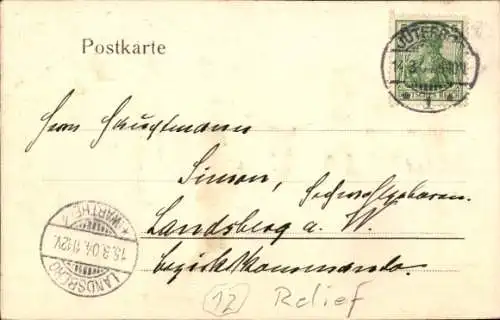 Postkarte
JÜTERBOG
14.3.
1
Herrn Hauptmann
Simon, Hochwohlgeboren.
Landsberg a. W.
Bezirkskommando.
LANDSBERG
15.3.04.11-12V.
* WARTHE *
12 Relief